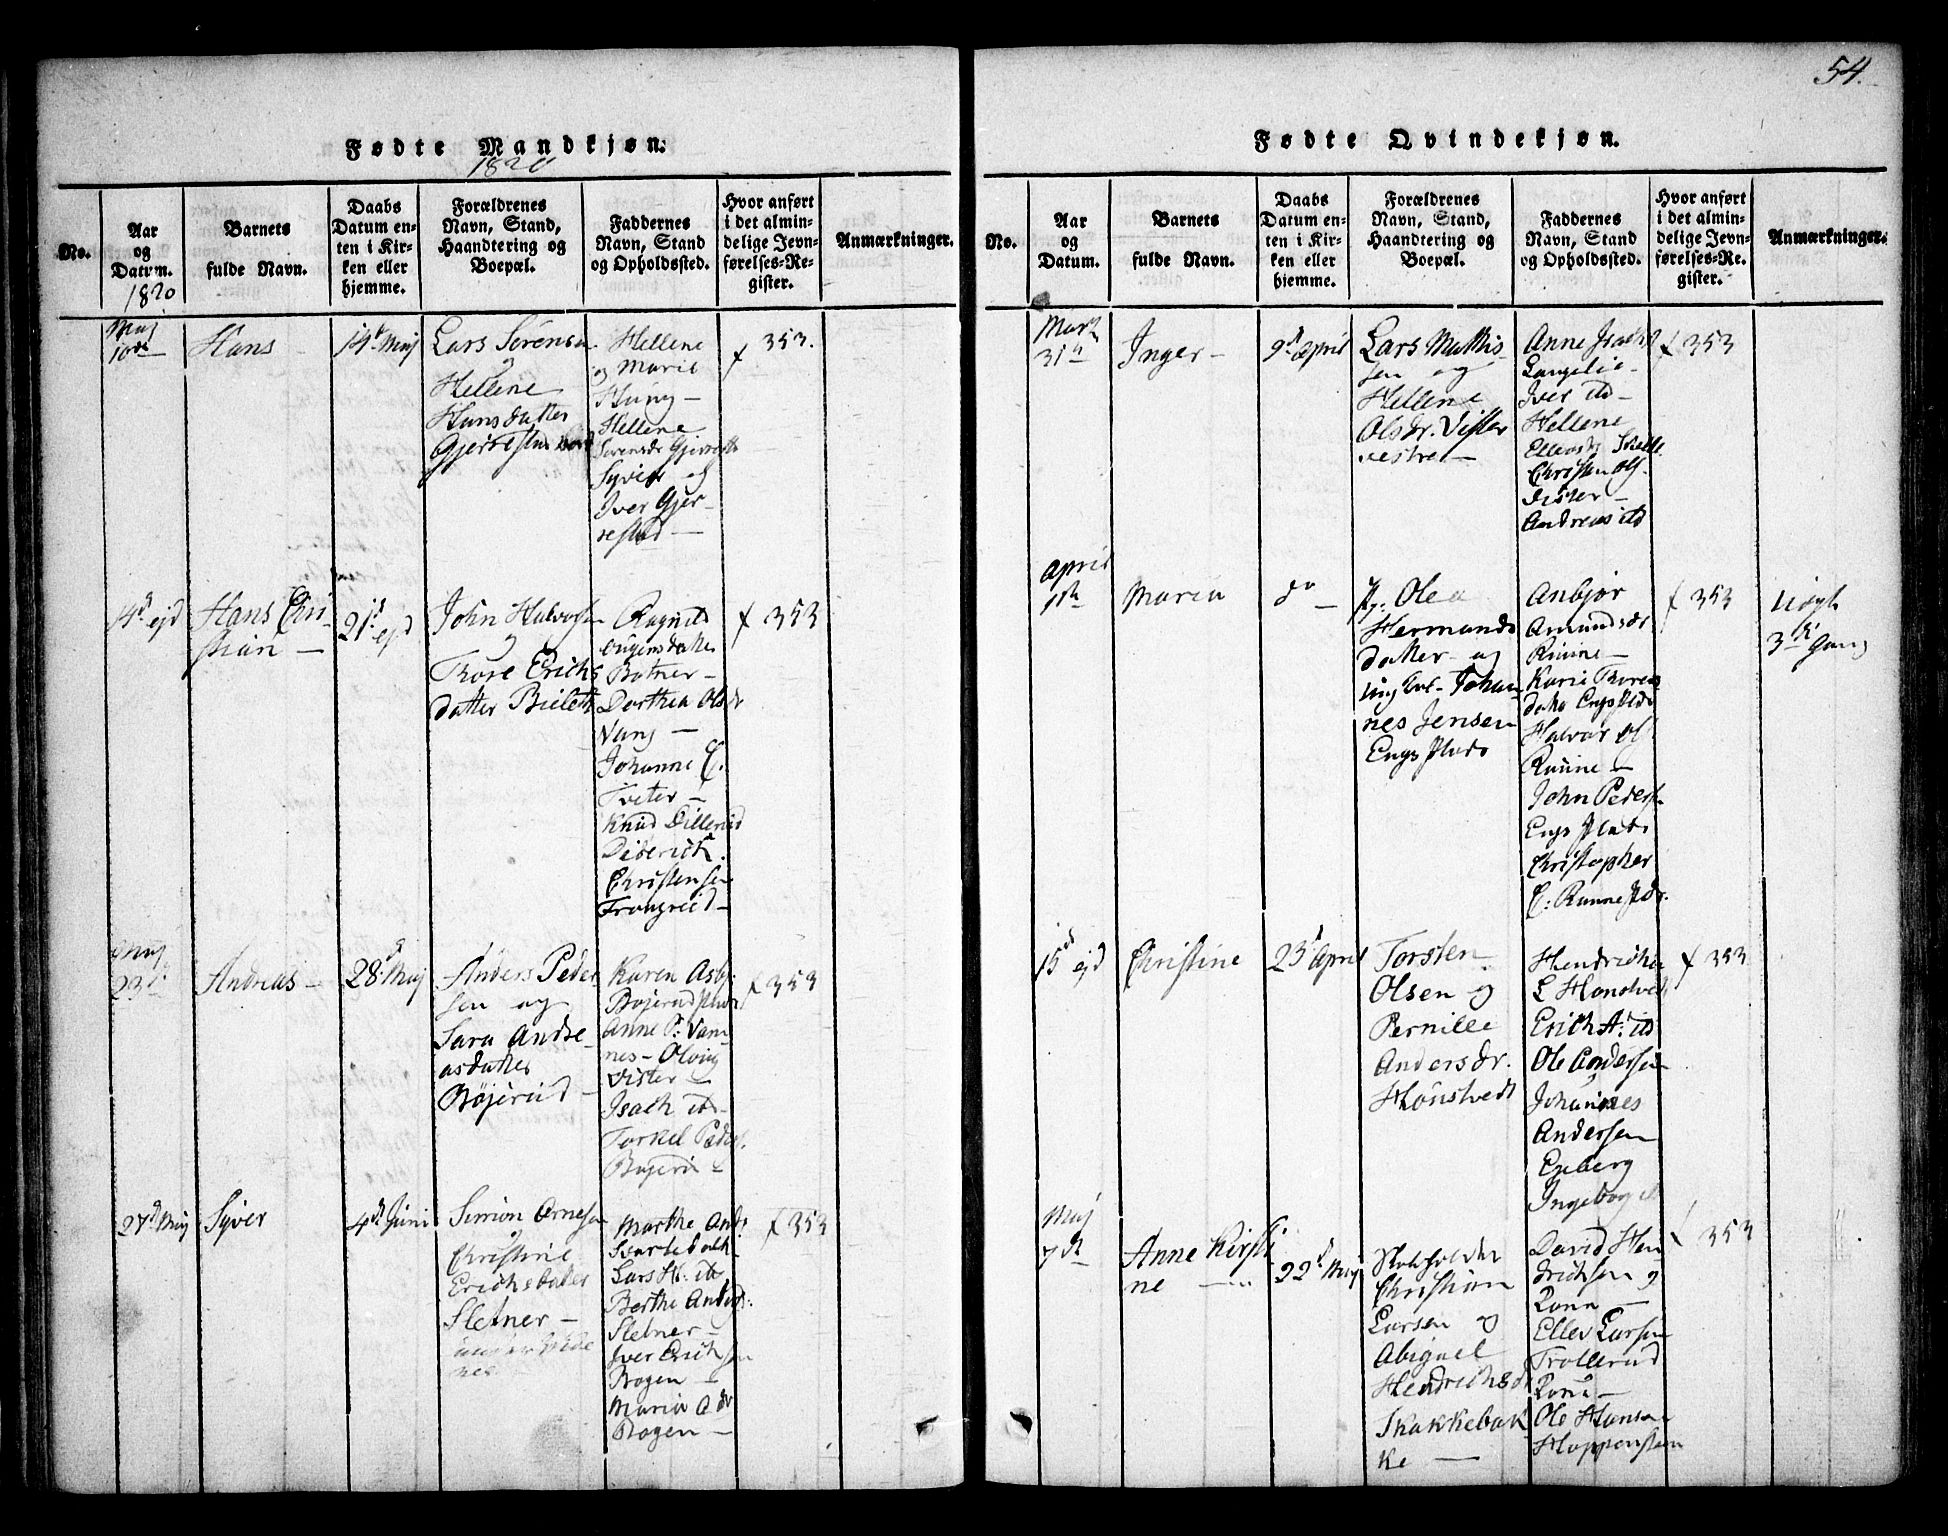 54.
Fødte Mandkjøn.
1820
No.
Aar
og
Datum.
1820
Barnets
fulde Navn.
Daabs
Datum en-
ten i Kir-
ken eller
hjemme.
Forældrenes
Navn, Stand,
Haandtering og
Boepæl.
Faddernes
Navn, Stand
og Opholdssted.
Hvor anført
i det almin-
delige Jevn-
førelses-Re-
gister.
Anmærkninger.
Maj
10de
Hans
14d Maj
Lars Sörensen
og
Hellene
Hansdatter
Hellene
og Marie
Hüng -
Hellene
Sörensdr
Syver og
Iver Gjer-
restad -
353.
14d ejd
Hans Chri-
stian -
21d ejd
John Halvorsen
og
Thore Erichs
datter
Ragnild
Botner -
Dorthea Olsdr
Vang -
Johanne C.
Tveter -
Knud Dillerud
Diderich
Christensen
353
Maj
23d
Andreas -
28d Maj
Anders Peder
sen og
Sara Andre-
asdatter
Böjerud -
Karen Asb.
Böjerud plads
Anne P. Vam-
nes - Olving
Vister -
Isach ib-
Torkel Peders.
Bøjerud -
353
27d Maj
Syver
4de Juni
Simon Arnesen
og
Christine
Erichsdatter
Sletner -
Marthe And.
Lars H. ib
Berthe Anders:
Sletner -
Iver Erichsen
Bogen -
Maria A dr
Bogen -
353
Fødte Qvindekjøn.
No.
Aar
og
Datum.
Barnets
fulde Navn.
Daabs
Datum en-
ten i Kir-
ken eller
hjemme.
Forældrenes
Navn, Stand,
Haandtering og
Boepæl.
Faddernes
Navn, Stand
og Opholdssted.
Hvor anført
i det almin-
delige Jevn-
førelses-Re-
gister.
Anmærkninger.
Marts
31te
Inger -
9d April
Lars Mathis-
sen og
Hellene
Olsdr. Vister
vestre -
Anne Isachs
Langelie -
Iver ib -
Hellene
Christen Ols.
Vister -
Andreas ib
353
April
1ste
Maria
do -
p: Olea
Hermands
datter - og
ung Carl - Johan-
nes Jensen
Engs plads
Anbjør
Amundsdr
Rünne -
Karie Thores
datter Engs plads
Halvor Ol.
Rünne -
John Peders.
Engs plads
Christopher
C: Runne pl.
353
Uægte
3die Gang
15d ejd
Christine
23d April
Torsten
Olsen og
Pernille
Andersdr.
Hönstvedt
Hendrichen
L Hönstvedt
Erich A. ib
Ole Andersen
Johannes
Andersen
Egeberg
Ingeborg
353
Maj
7de
Anne Kirsti-
ne -
22d Maj
Christian
Larsen og
Abigael
Hendrichsdr
Skakkebak
ke -
David Hen-
drichsen og
Kona -
Eller Larsen
Trollerud
Kona -
Ole Hansen
353